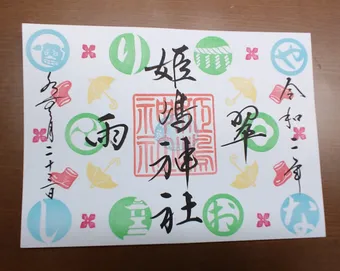 令和二年
翠
姫嶋神社
雨
水無月二十三日
や
り
な
お
し
姫嶋神社